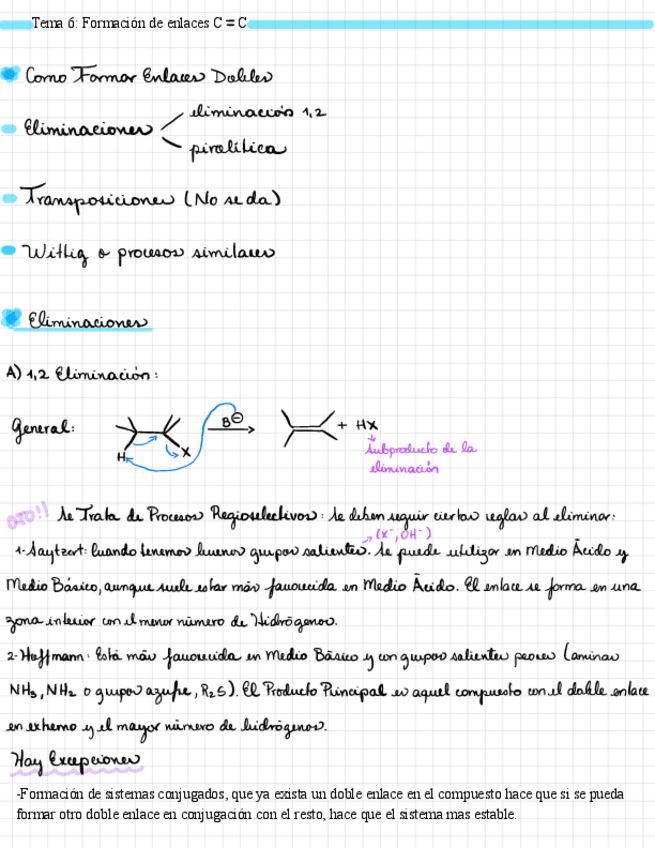 Tema 6: Formación de enlaces C = C
Como Formar Enlaces Dobles
Eliminaciones
eliminación 1,2
pirolítica
Transposiciones (No se da)
Wittig o procesos similares
Eliminaciones
A) 1,2 Eliminación:
General:
H
X
B⊖
+ HX
Subproducto de la
eliminación
OJO!! Se Trata de Procesos Regioselectivos: Se deben seguir ciertas reglas al eliminar:
(X⁻, OH⁻)
1- Saytzert: Cuando tenemos buenos grupos salientes. Se puede utilizar en Medio Ácido y
Medio Básico, aunque suele estar más favorecida en Medio Ácido. El enlace se forma en una
zona interior con el menor número de Hidrógenos.
2- Hoffmann: Está más favorecida en Medio Básico y con grupos salientes peores (aminas
NH₃, NH₂ o grupos azufre, R₂S). El Producto Principal es aquel compuesto con el doble enlace
en extremo y el mayor número de hidrógenos.
Hay Excepciones
-Formación de sistemas conjugados, que ya exista un doble enlace en el compuesto hace que si se pueda
formar otro doble enlace en conjugación con el resto, hace que el sistema mas estable.